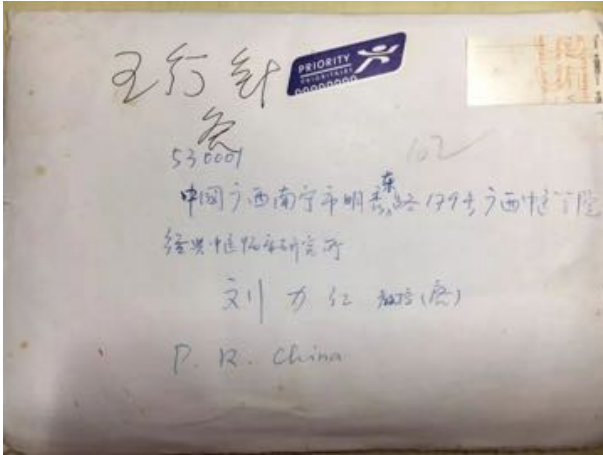 王行 针
PRIORITY
PRIORITAIRE
灸
102
530001
中国广西南宁市明秀东路179号广西中医学院
经典中医临床研究所
刘力红 教授(启)
P. R. China